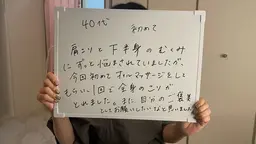 40代 初めて
肩こりと下半身のむくみ
にずっと悩まされていましたが、
今回初めてオイルマッサージをして
もらい、1回で全身のこりが
とれました。また、自分のご褒美
としてお願いしたいなと思いました